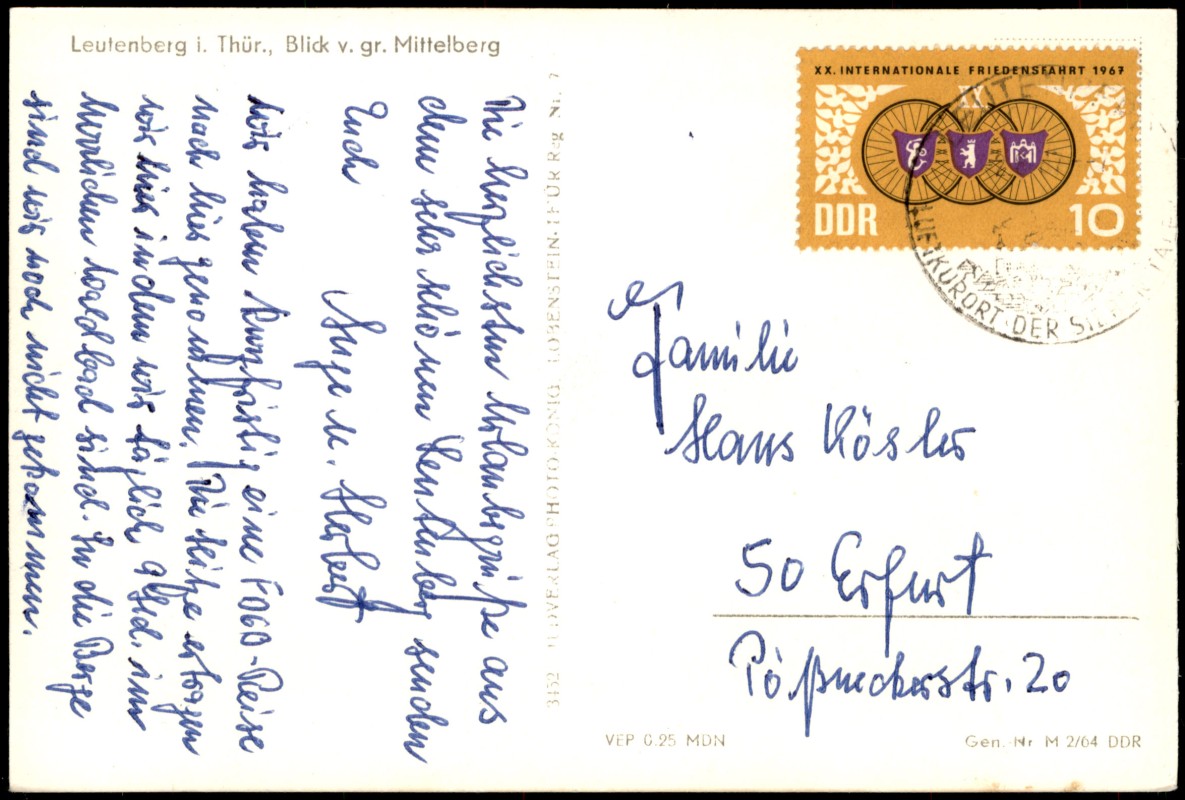 Leutenberg i. Thür., Blick v. gr. Mittelberg
Die herzlichsten Urlaubsgrüße aus
dem sehr schönen Leutenberg senden
Euch
Inge u. Herbert
Wir haben kurzfristig eine FDGB-Reise
nach hier genommen. Die Hitze ertragen
wir hier indem wir täglich im
herrlichen Waldbad sind. In die Berge
sind wir noch nicht gekommen.
3452 BILDVERLAG PHOTO-KÖNIG LOBENSTEIN-THÜR Rg. Nr. 7
XX. INTERNATIONALE FRIEDENSFAHRT 1967
XX.
DDR
10
LEUTENBERG
KURORT DER SIEBEN TÄLER
Familie
Hans Kösler
50 Erfurt
Pößneckerstr. 20
VEP 0.25 MDN
Gen.-Nr M 2/64 DDR